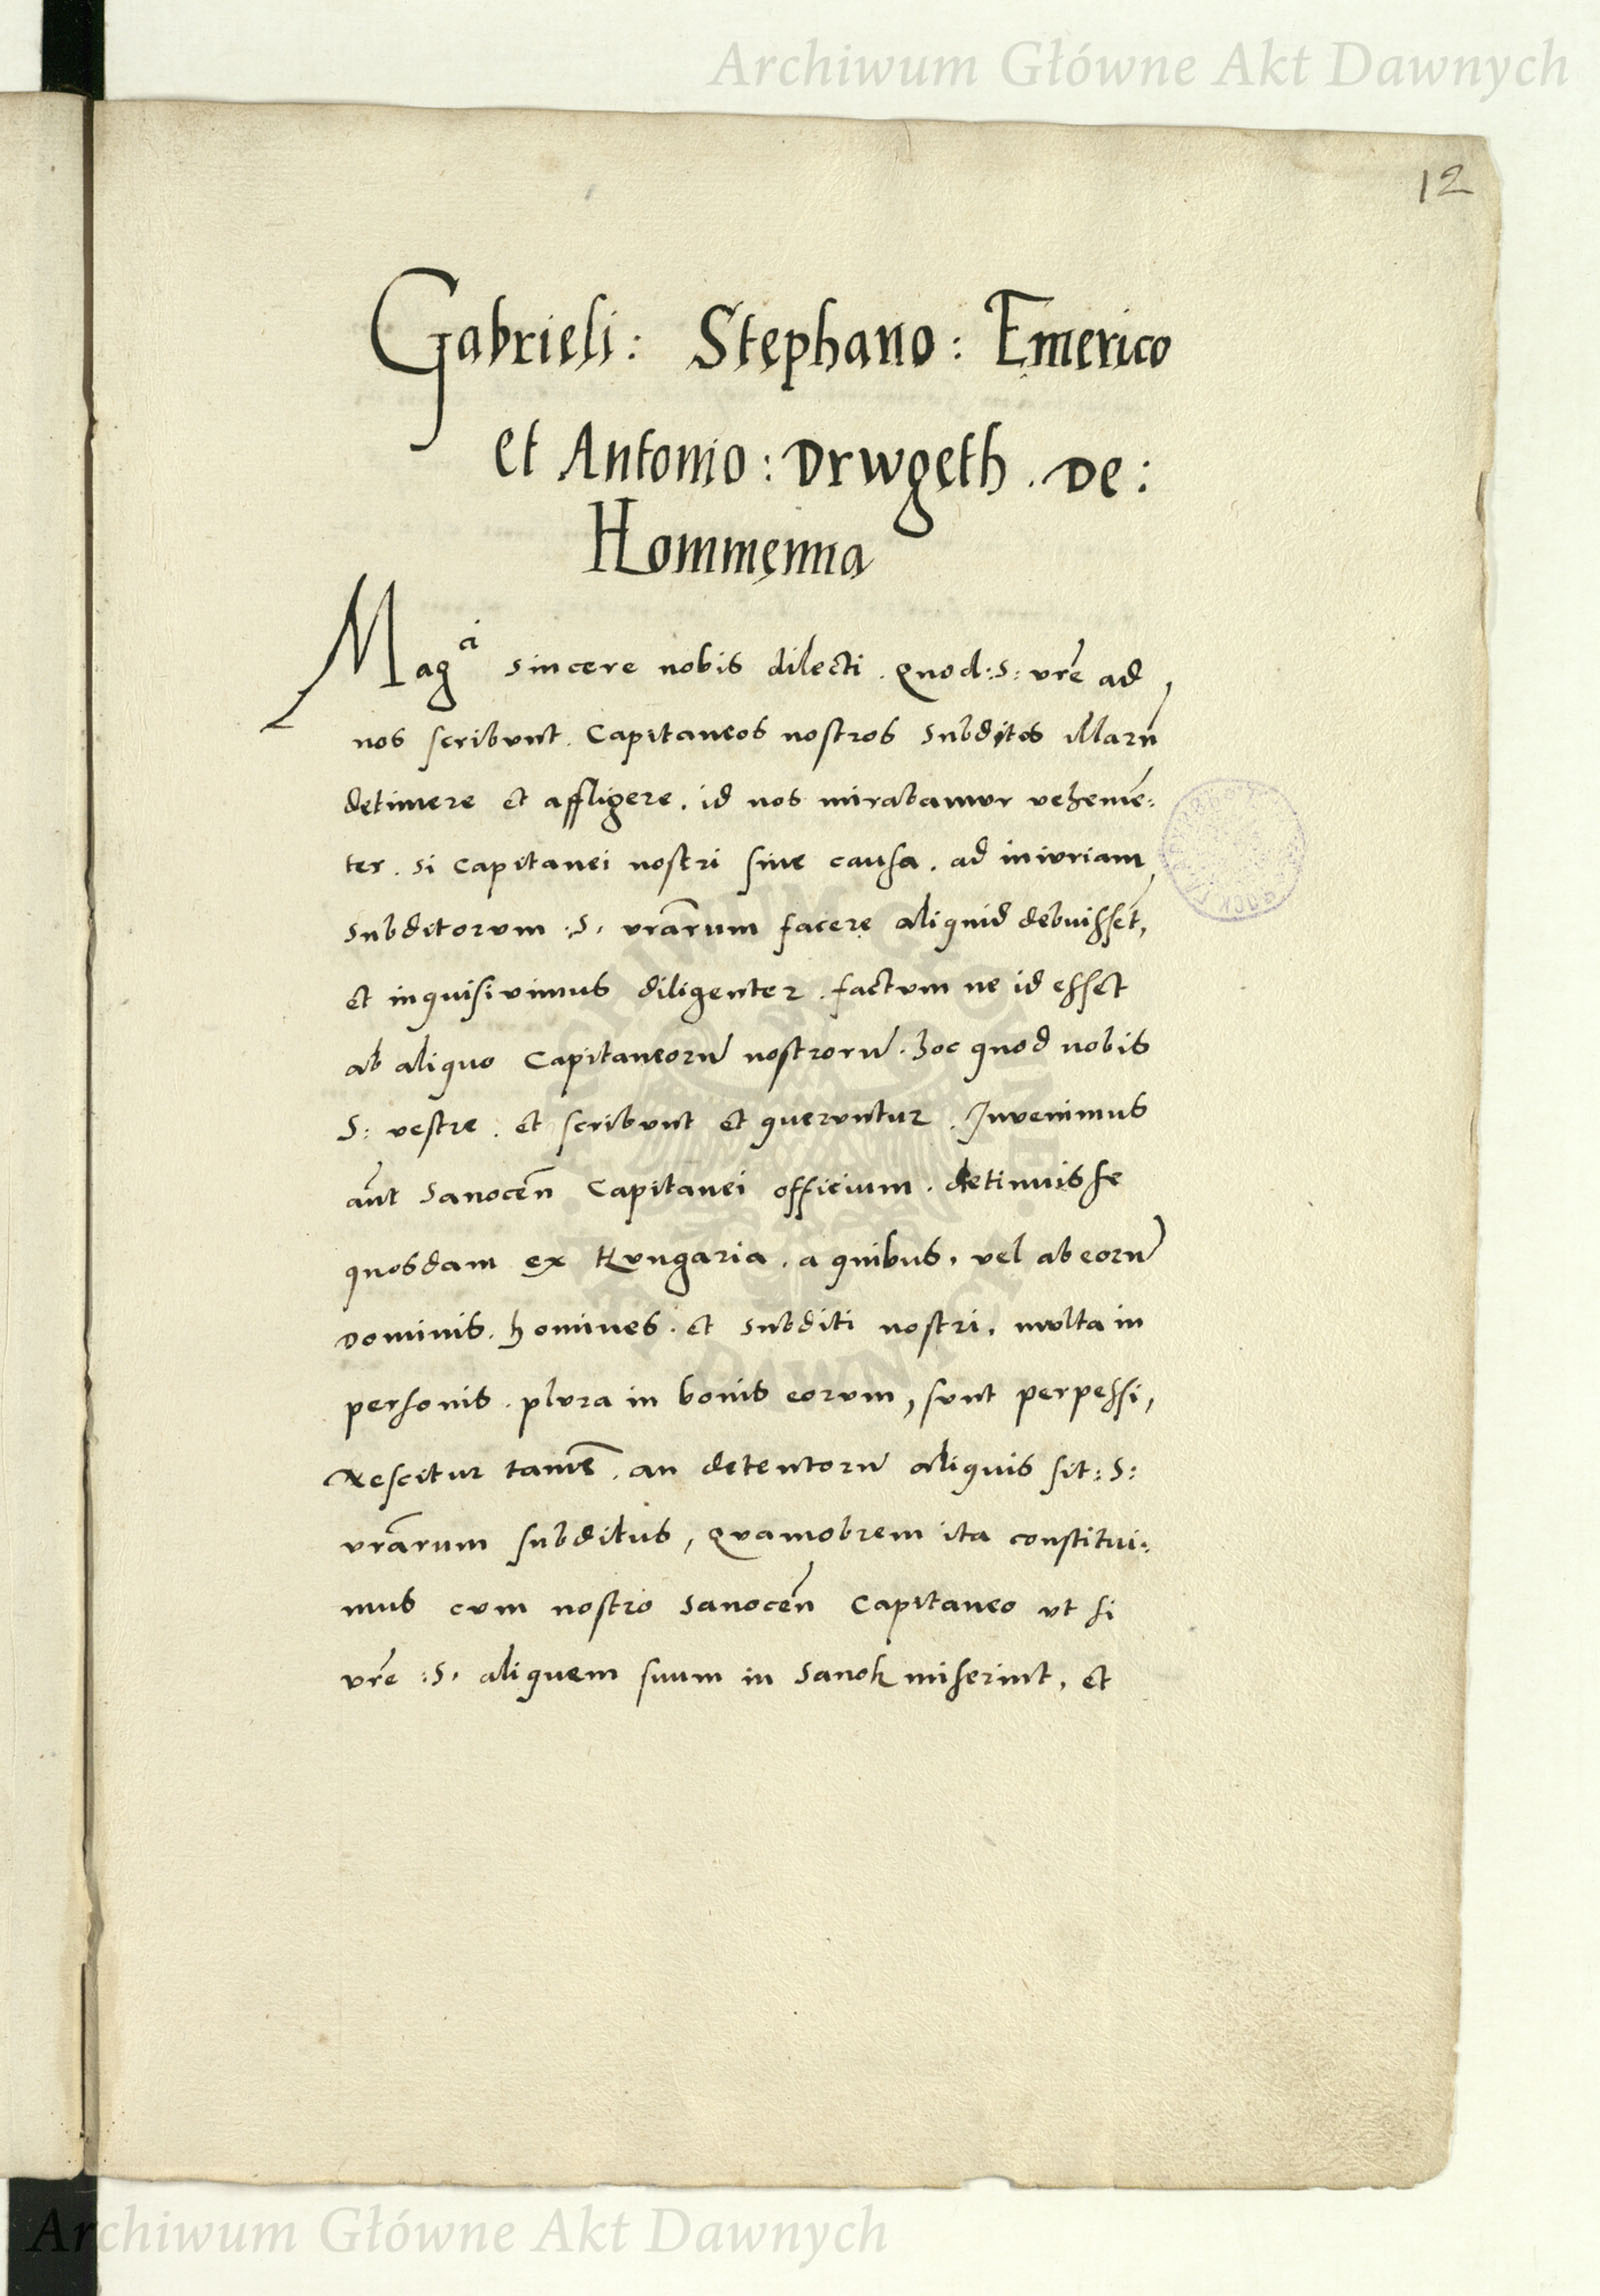 Archiwum Główne Akt Dawnych
12
Gabrieli: Stephano: Emerico
et Antonio: Drwgeth. De:
Hommenna
Mag^ci sincere nobis dilecti. Quod: S: vr̃e ad
nos scribunt. Capitaneos nostros subditos illarũ
detinere et affligere. id nos mirabamur vehemẽ:
ter. si capitanei nostri sine causa. ad iniuriam
subditorum .S. vrãrum facere aliquid debuissẽt,
et inquisivimus diligenter. factum ne id esset
ab aliquo Capitaneorũ nostrorũ. hoc quod nobis
S: vestre. et scribunt et queruntur. Invenimus
aũt Sanoceñ Capitanei officium. detinuisse
quosdam ex Hungaria. a quibus. vel ab eorũ
dominis. homines. et subditi nostri. multa in
personis. plura in bonis eorum, sunt perpessi,
Nescitur tamẽ. an detentorũ aliquis sit: S:
vrãrum subditus, Quamobrem ita constitui:
mus cum nostro Sanoceñ Capitaneo ut si
vr̃e :S. aliquem suum in Sanok miserint, et
Archiwum Główne Akt Dawnych